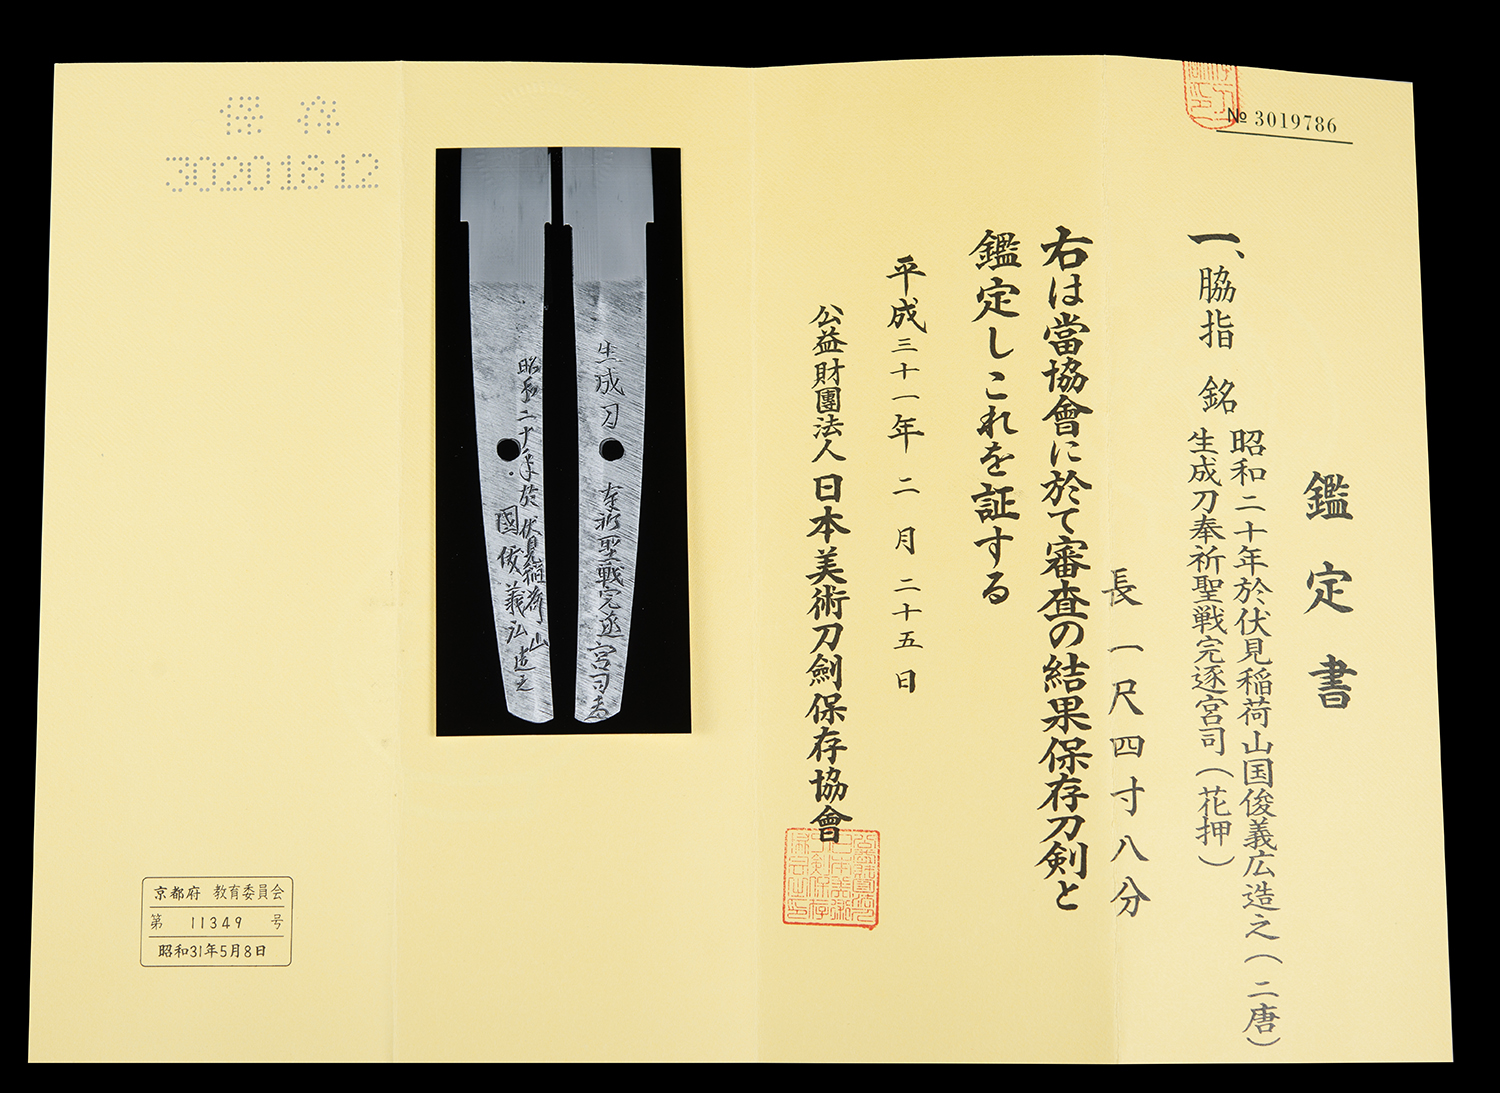 № 3019786
鑑定書
一、脇指 銘
昭和二十年於伏見稲荷山国俊義広造之(二唐)
生成刀奉祈聖戦完遂宮司(花押)
長一尺四寸八分
右は當協會に於て審査の結果保存刀剣と
鑑定しこれを証する
平成三十一年二月二十五日
公益財團法人日本美術刀劍保存協會
生成刀 奉祈聖戦完遂宮司
昭和二十年於伏見稲荷山
國俊義弘造之
保存
30201812
京都府 教育委員会
第 11349 号
昭和31年5月8日